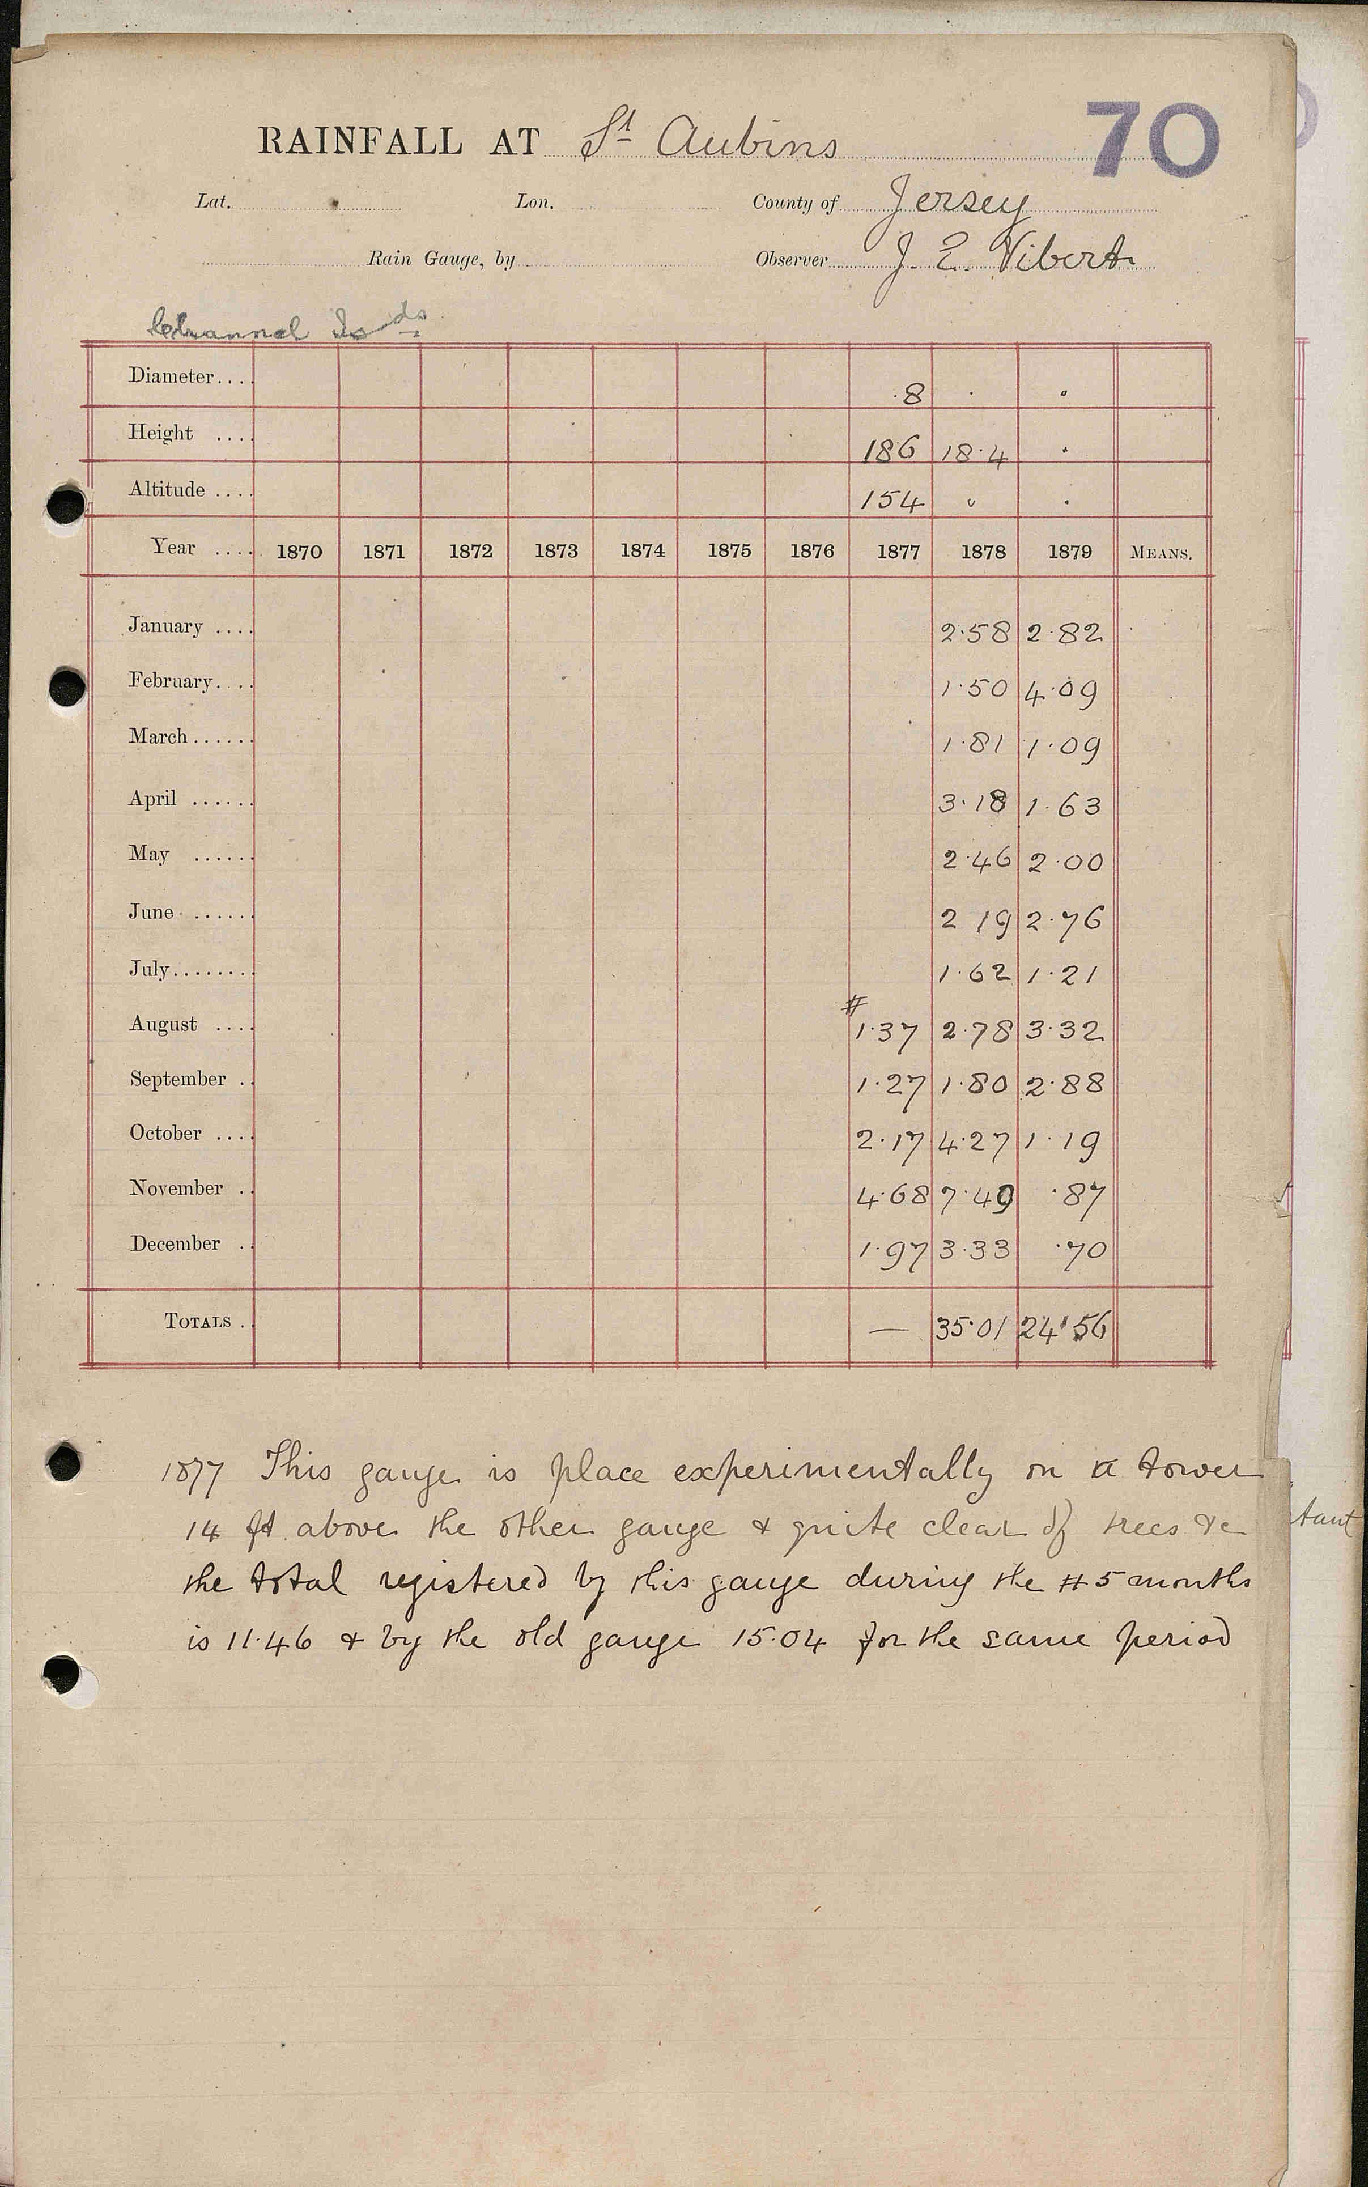 70
RAINFALL AT St Aubins
Lat. Lon. County of Jersey
Rain Gauge, by Observer J. E. Vibert
Channel Isds
Diameter.... 8 · "
Height .... 186 18·4 "
Altitude .... 154 " "
Year .... 1870 1871 1872 1873 1874 1875 1876 1877 1878 1879 MEANS.
January .... 2·58 2·82
February.... 1·50 4·09
March...... 1·81 1·09
April ...... 3·18 1·63
May ...... 2·46 2·00
June ...... 2 19 2·76
July........ 1·62 1·21
August .... # 1·37 2·78 3·32
September .. 1·27 1·80 2·88
October .... 2·17 4·27 1·19
November .. 4·68 7·49 ·87
December .. 1·97 3·33 ·70
TOTALS .. — 35·01 24·56
1877 This gauge is place experimentally on a tower
14 ft above the other gauge & quite clear of trees &c
the total registered by this gauge during the # 5 months
is 11·46 & by the old gauge 15·04 for the same period